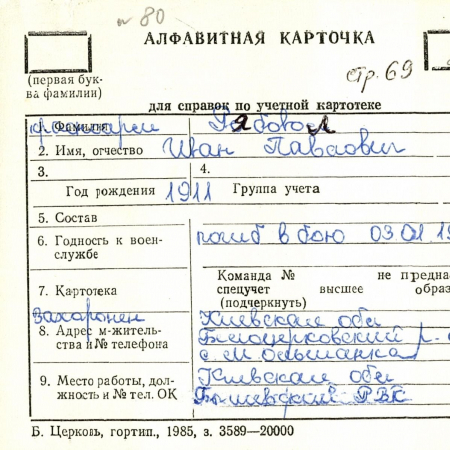 № 80
АЛФАВИТНАЯ КАРТОЧКА
стр. 69
(первая бук-
ва фамилии)
для справок по учетной картотеке
1. Фамилия Рябовол
2. Имя, отчество Иван Павлович
3. 4.
Год рождения 1911 Группа учета
5. Состав
6. Годность к воен-
службе
погиб в бою 03 01 19
Команда № не предна
7. Картотека спецучет высшее образ
(подчеркнуть)
захоронен Киевская обл
8. Адрес м-житель-
ства и № телефона
Белоцерковский р-
с. М. Ольшанка
9. Место работы, дол-
жность и № тел. ОК
Киевская обл
РВК
Б. Церковь, гортип., 1985, з. 3589—20000